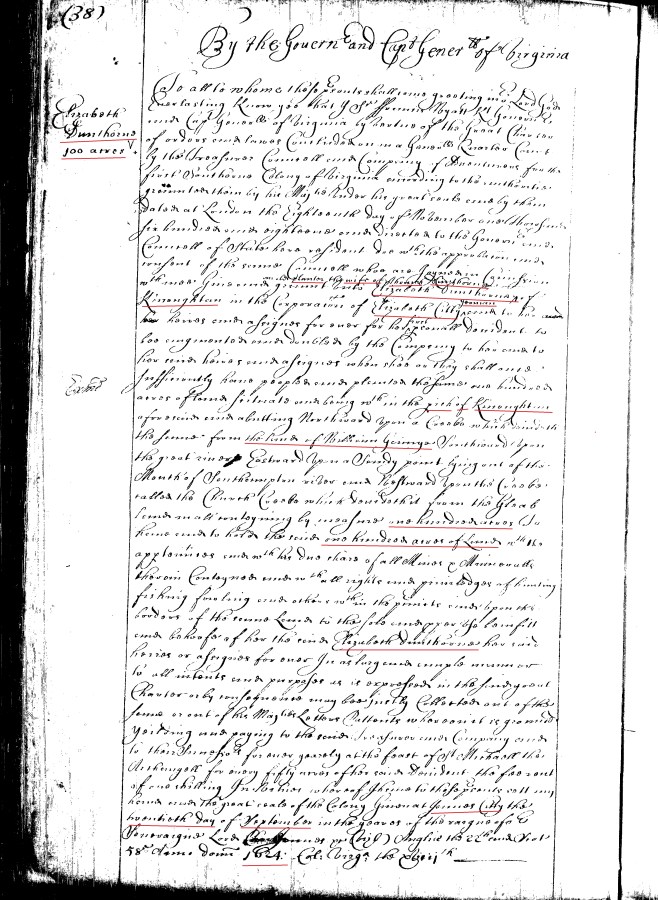 (38)
By the Governr and Capt Generll of Virginia
Elizabeth
Dunthorne
100 acres
To all to whome these prsents shall come greeting in or Lord God
Everlasting Know yee that I Sr Francis Wyatt Kt Governr &
and Capt Generall of Virginia by vertue of the Great Charter
of orders and lawes Concluded on in a Generall Quarter Court
by the Treasurer Councell and Company of Adventurers for the
first Southerne Colony of Virginia according to the authoritie
graunted them by his Matie under his great seale and by them
dated at London the Eighteenth day of November one thousand
six hundred and eighteene and directed to the Governr and
Councell of State here resident doe wth the approbation and
consent of the same Councell who are joyned in Comission
wth mee Give and graunt unto Elizabeth Dunthorne of
the wife of Thomas Dunthorne
Kicoughtan in the Corporacon of Elizabeth Citty and to her
heires and assignes for ever for her first devident to
bee augmented and doubled by the Company to her and to
her said heires and assignes when shee or they shall once
sufficiently have peopled and planted the same one hundred
acres of land situate and being wthin the prsh of Kicoughtan
aforesaid and abutting Northward upon a Creeke which devideth
the same from the land of William Southward upon
the great river Eastward upon a Sandy point lying out of the
Mouth of Southampton river and Westward upon the Creeke
called the Church Creeke which devideth it from the Gleab
land in all contayning by measure one hundred acres To
have and to hold the said one hundred acres of Land wth the
apptennces and wth his due share of all Mines & Mineralls
therein Conteyned and wth all rights and priviledges of hunting
fishing fowling and others wthin the prcincts and upon the
borders of the same Land to the sole and pper use benefitt
and behoofe of her the said Elizabeth Dunthorne her said
heires or assignes for ever In as large and ample manner
to all intents and purposes as is expressed in the said great
Charter or by consequence may bee justly Collected out of the
same or out of his Maties Letters Pattents whereon it is grounded
Yeilding and paying to the said Treasurer and Company and
to their Successors for ever yearely at the feast of St Michaell the
Archangell for every fifty acres of her said Devident the fee rent
of one shilling In Witnes whereof I have to these prsents sett my
hand and the great seale of the Colony Given at James Citty the
twentieth day of September in the yeares of the raigne of or
Soveraigne Lord James Anglie the 22th and Scot
58o Anno domi 1624. Col: Virga: the eight